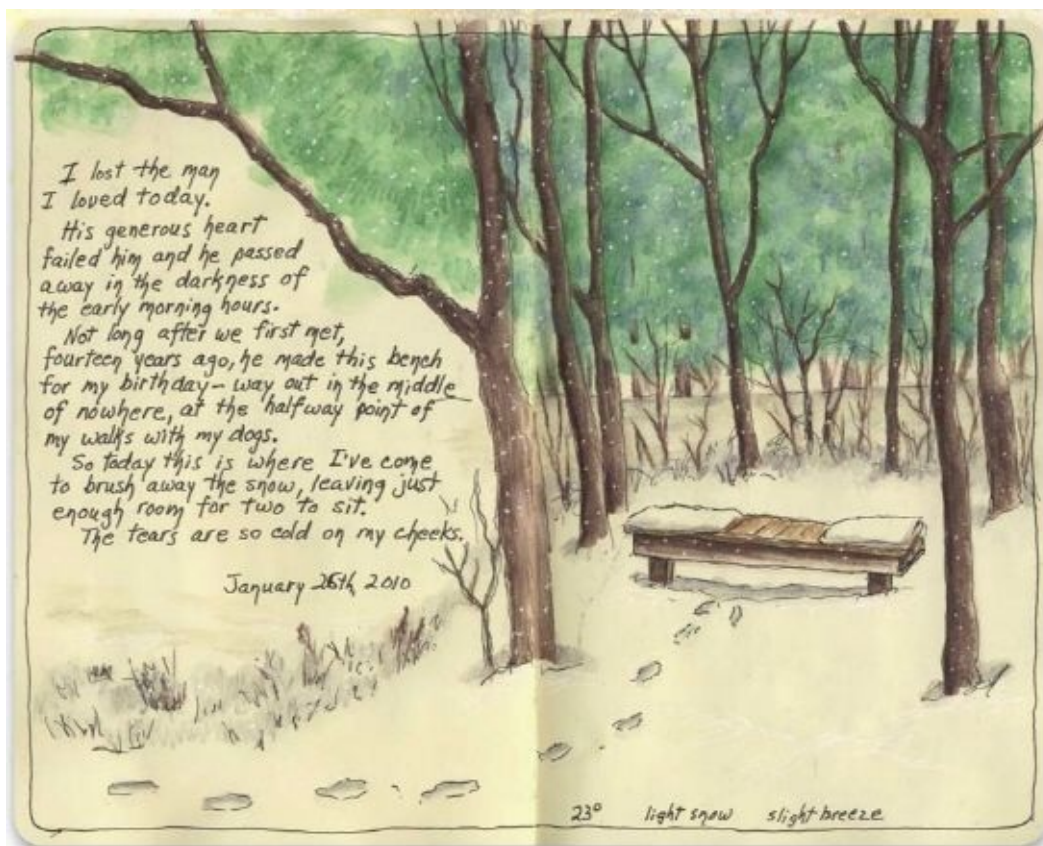 I lost the man
I loved today.
His generous heart
failed him and he passed
away in the darkness of
the early morning hours.
Not long after we first met,
fourteen years ago, he made this bench
for my birthday – way out in the middle
of nowhere, at the halfway point of
my walks with my dogs.
So today this is where I've come
to brush away the snow, leaving just
enough room for two to sit.
The tears are so cold on my cheeks.
January 26th 2010
23° light snow slight breeze